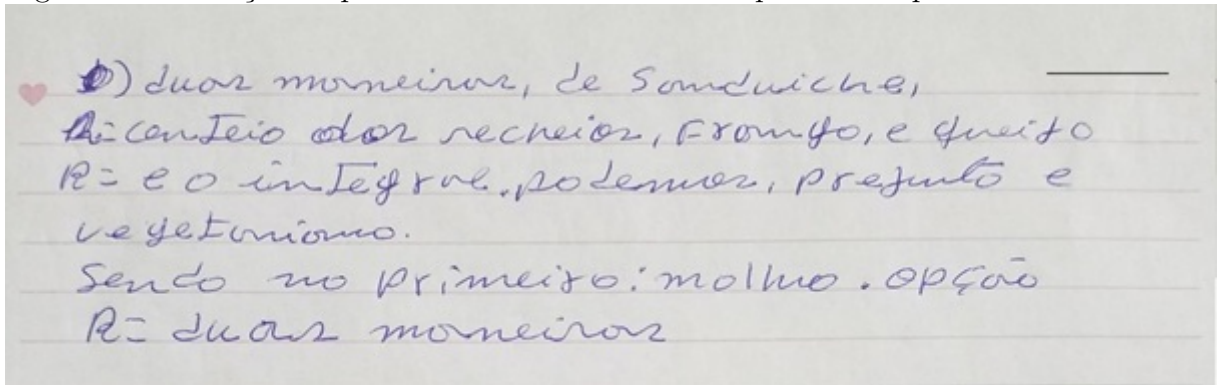 b) duas maneiras, de Sanduiche,
R= centeio dos recheios, Frango, e queijo
R= e o integral. podemos, presunto e
vegetariano.
Sendo no primeiro: molho. opção
R= duas maneiras